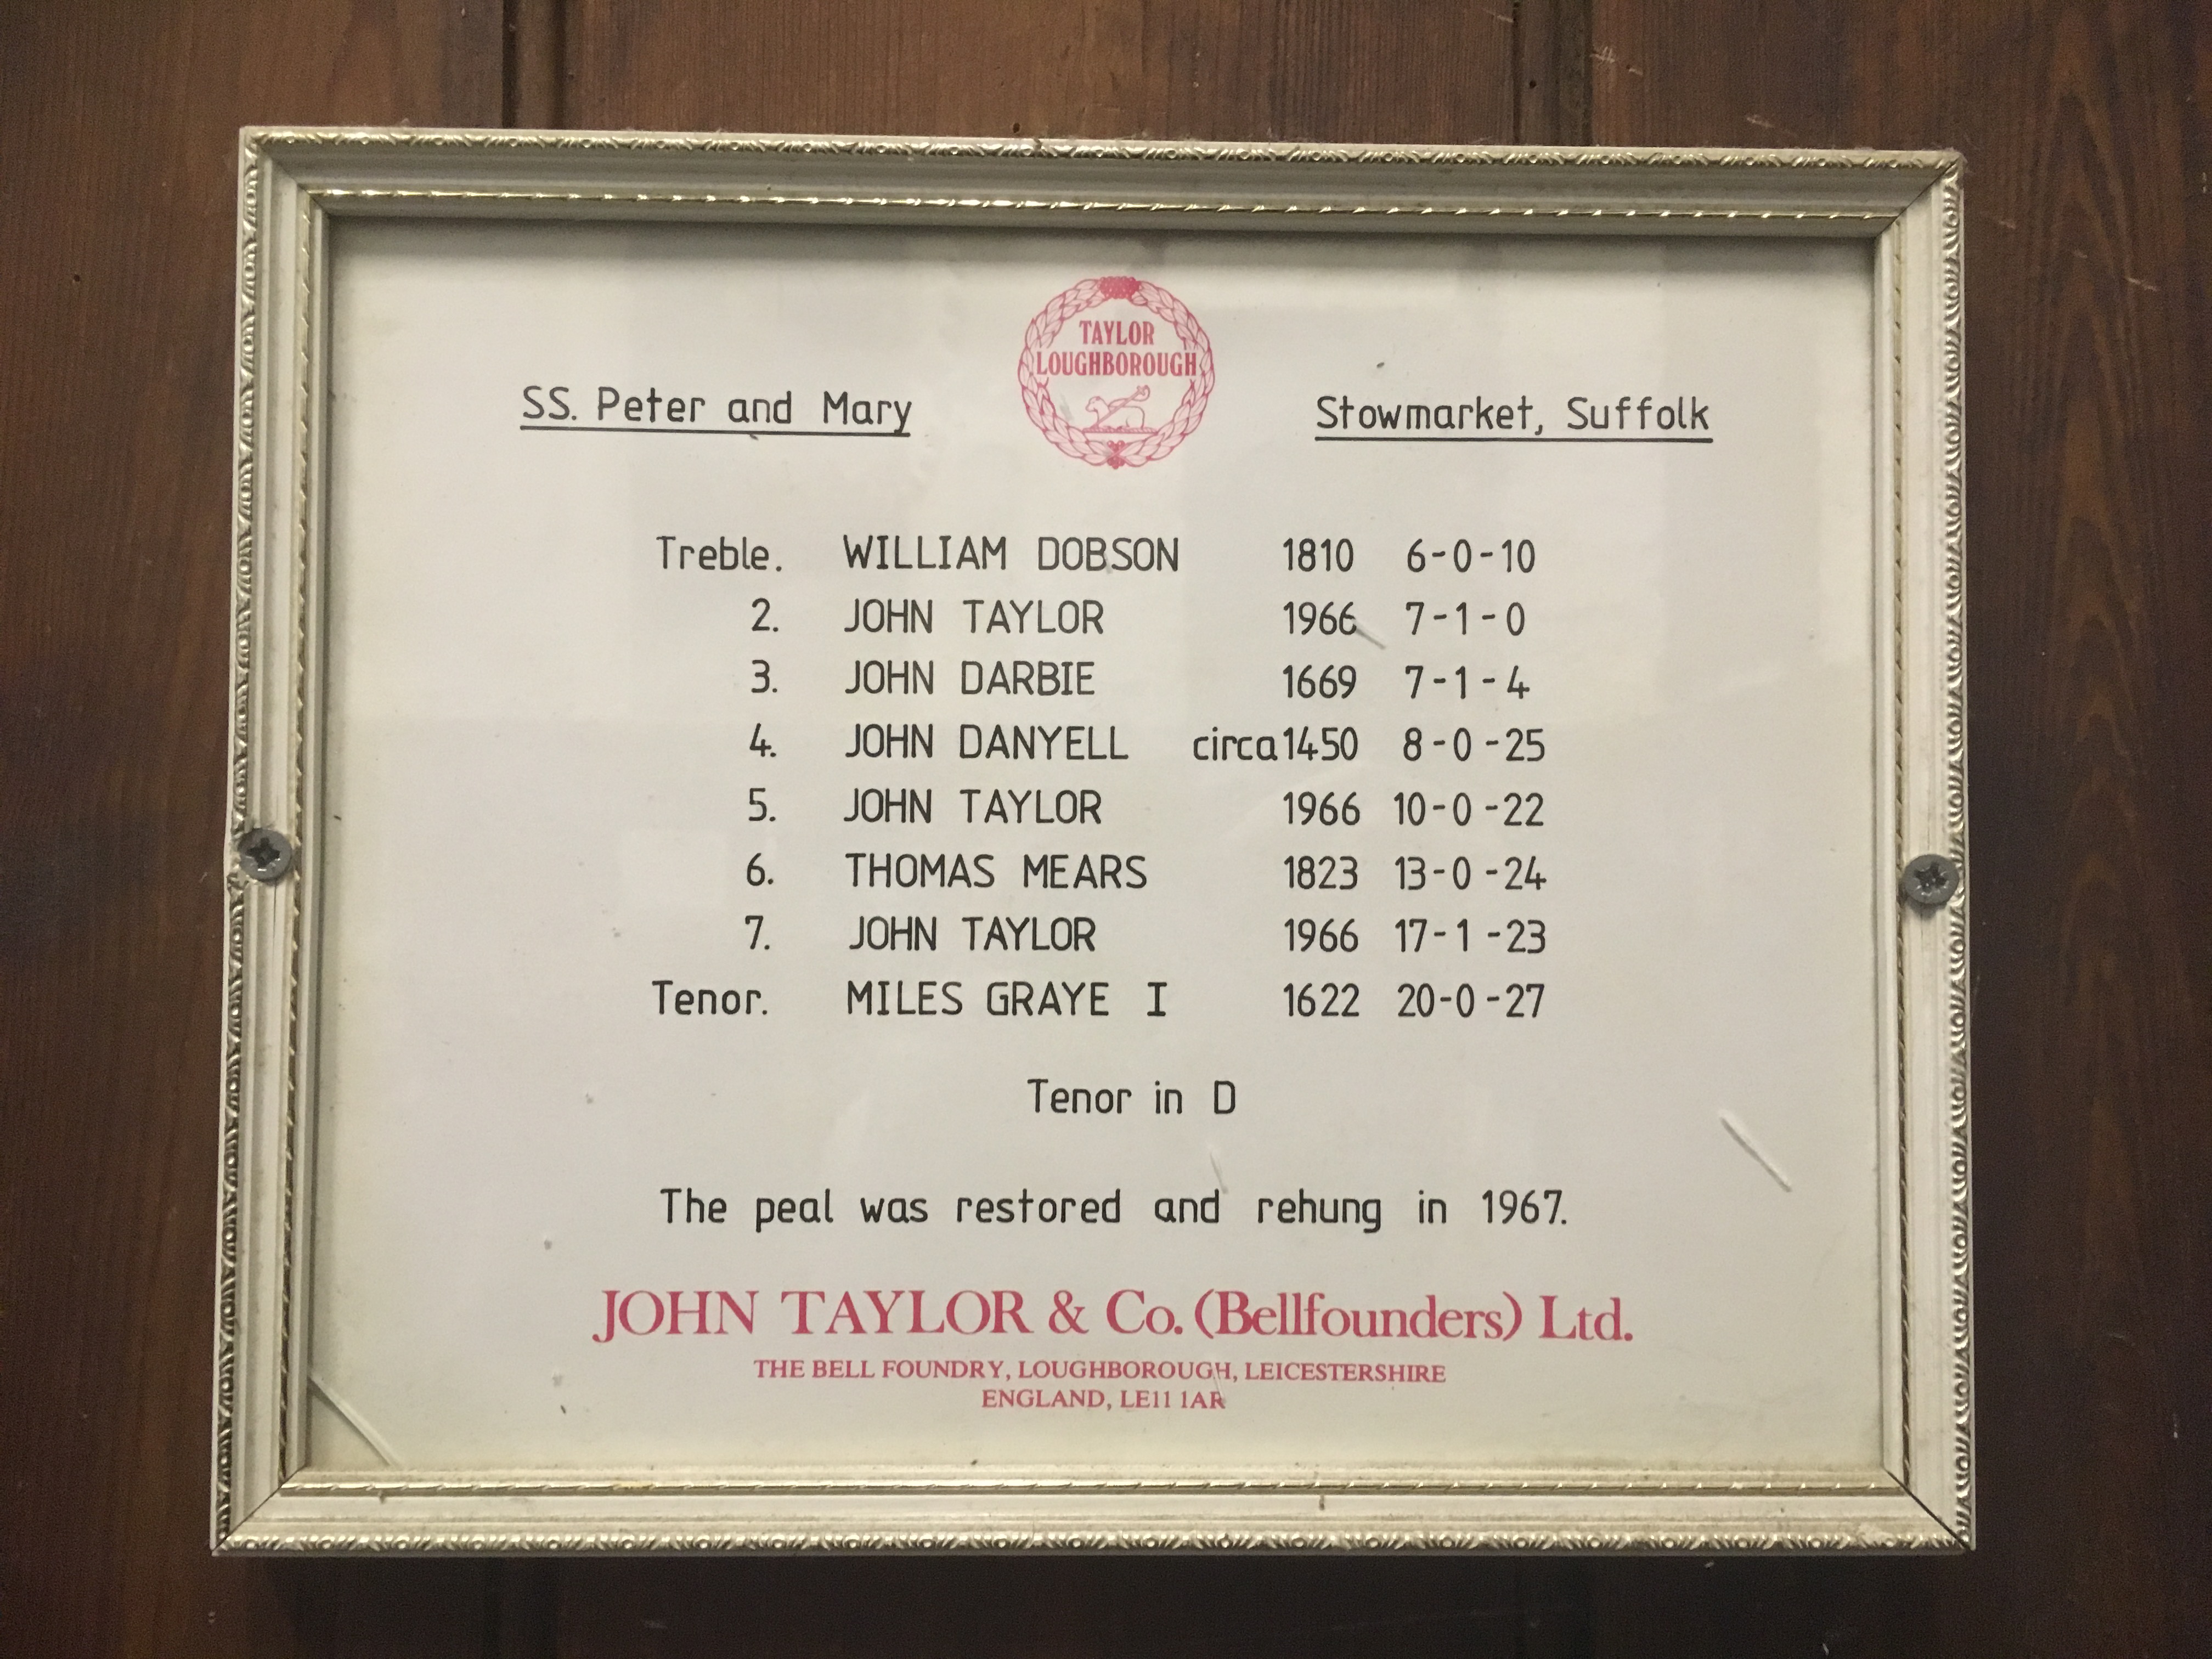 TAYLOR
LOUGHBOROUGH
SS. Peter and Mary Stowmarket, Suffolk
Treble. WILLIAM DOBSON 1810 6-0-10
2. JOHN TAYLOR 1966 7-1-0
3. JOHN DARBIE 1669 7-1-4
4. JOHN DANYELL circa 1450 8-0-25
5. JOHN TAYLOR 1966 10-0-22
6. THOMAS MEARS 1823 13-0-24
7. JOHN TAYLOR 1966 17-1-23
Tenor. MILES GRAYE I 1622 20-0-27
Tenor in D
The peal was restored and rehung in 1967.
JOHN TAYLOR & Co. (Bellfounders) Ltd.
THE BELL FOUNDRY, LOUGHBOROUGH, LEICESTERSHIRE
ENGLAND, LE11 1AR